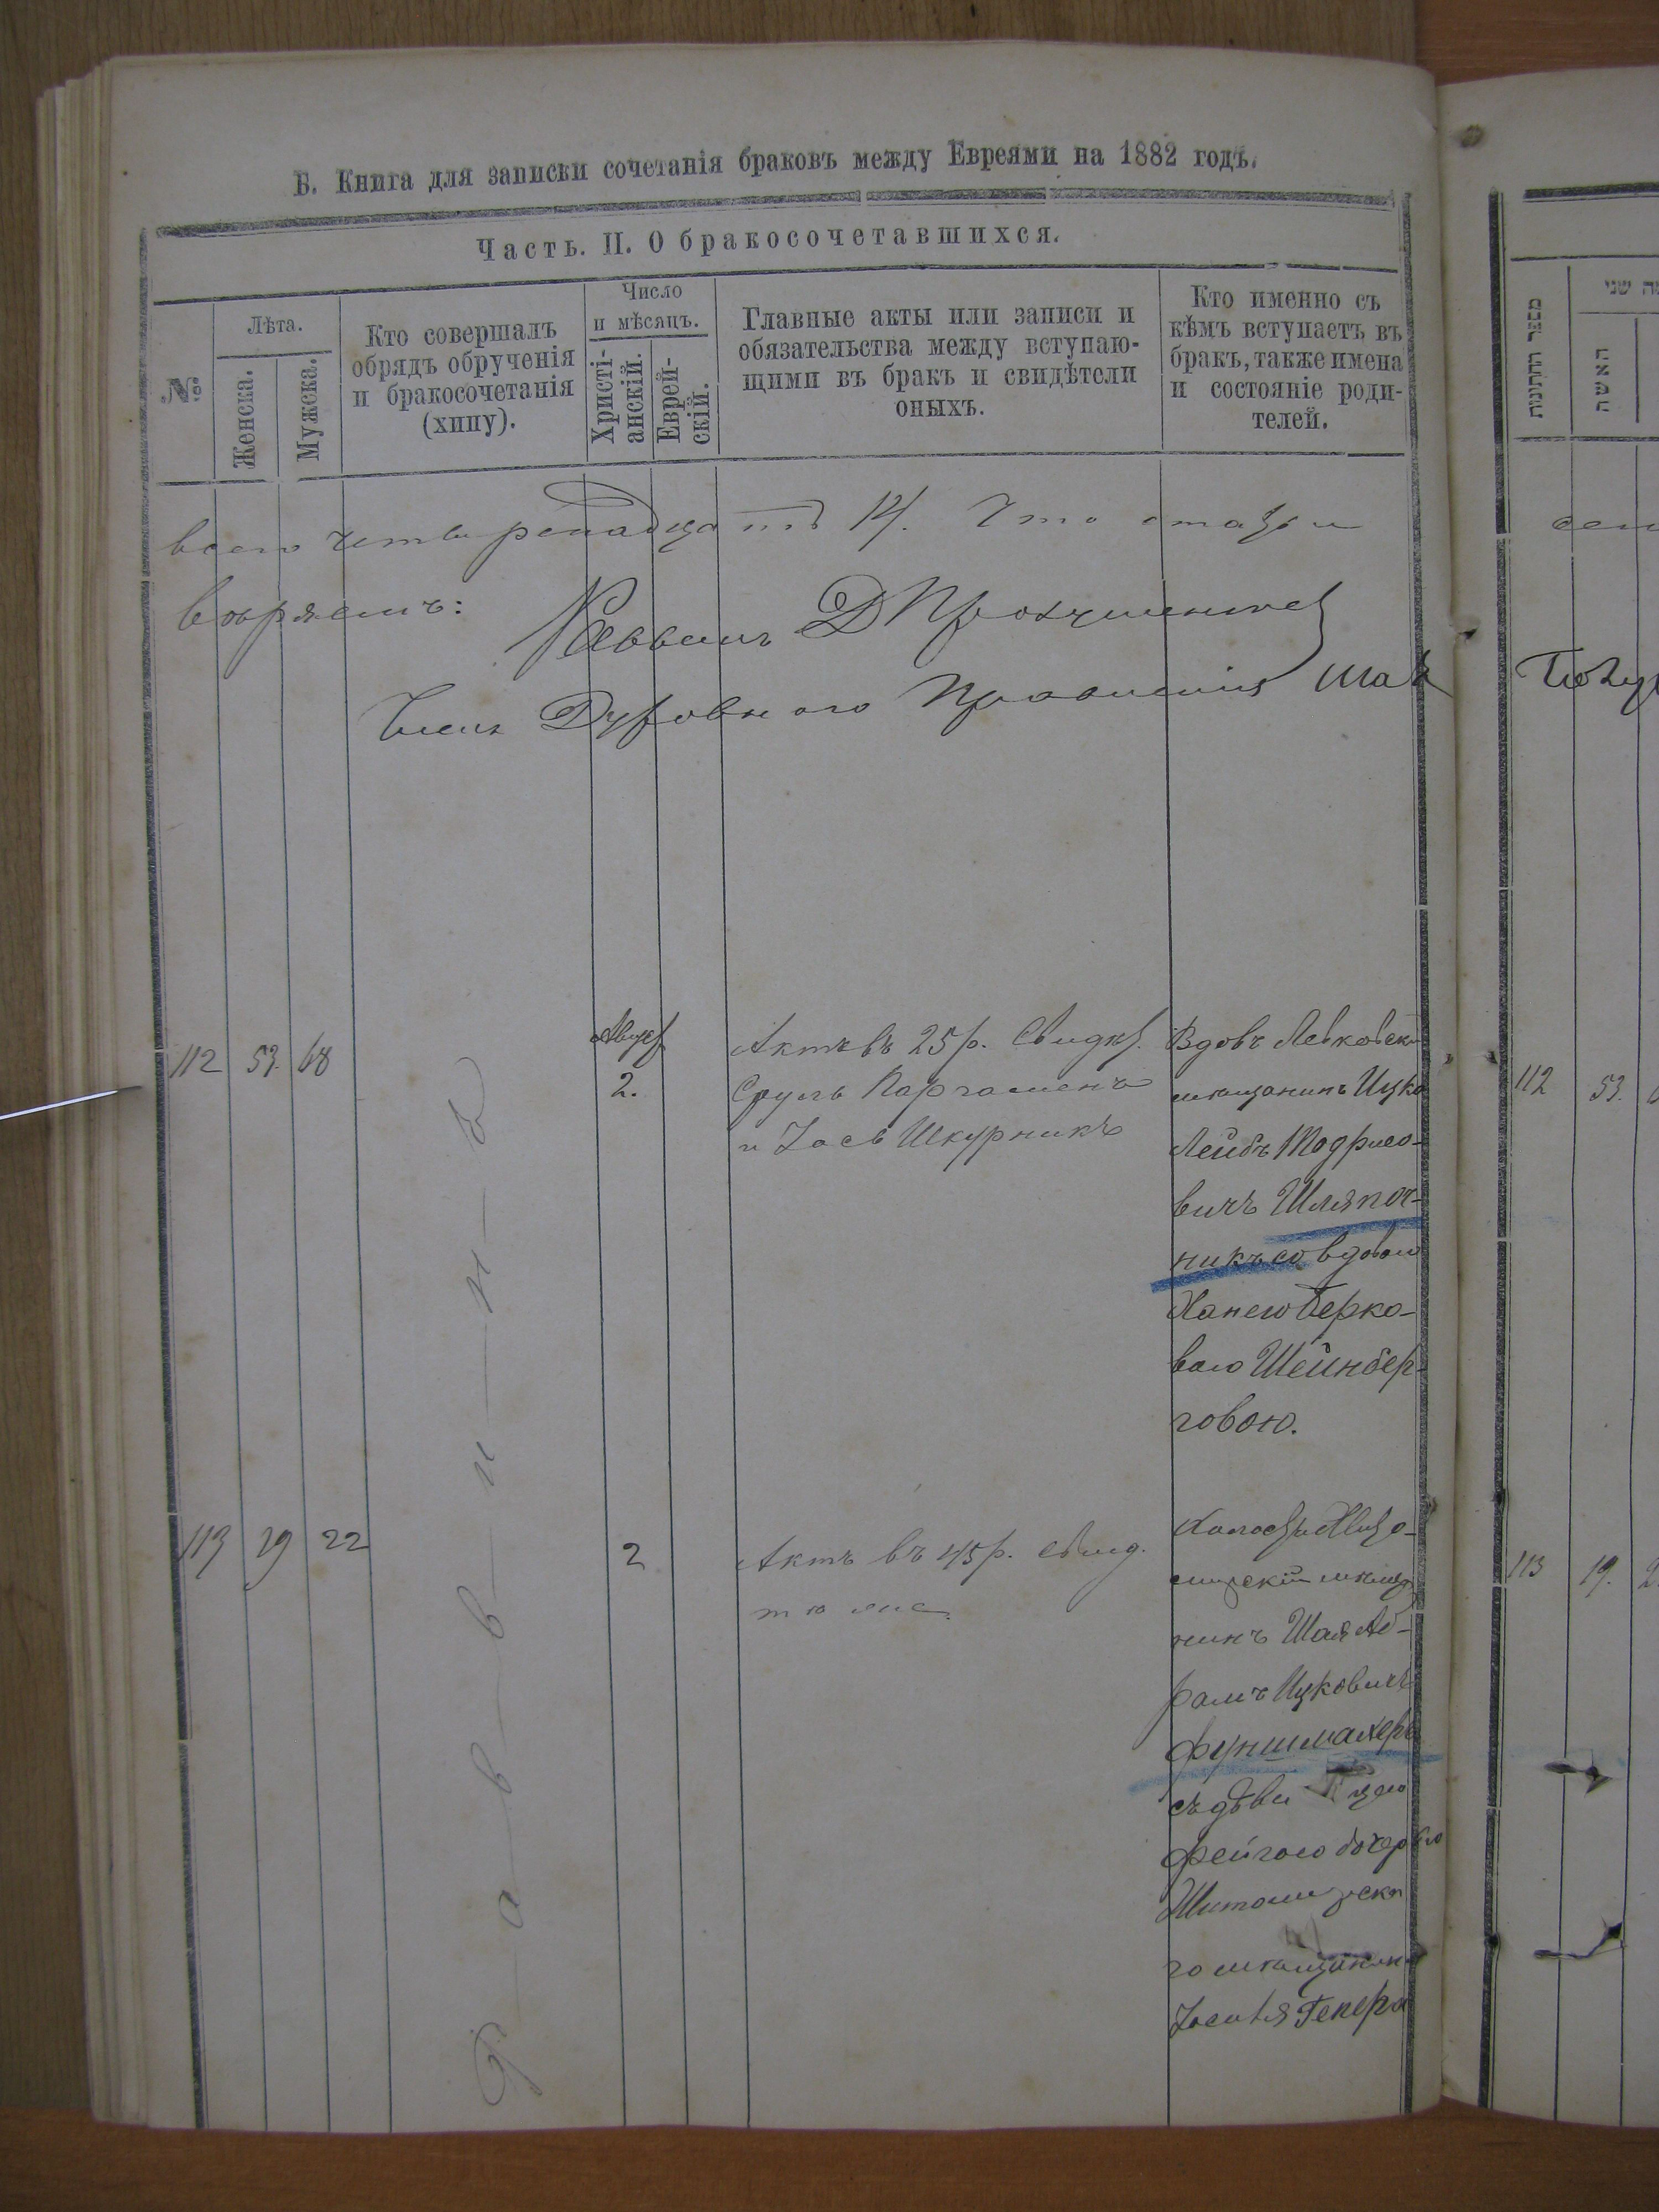 Б. Книга для записки сочетанія браковъ между Евреями на 1882 годъ.
Часть. II. О бракосочетавшихся.
№
Лѣта.
Женска.
Мужска.
Кто совершалъ
обрядъ обрученія
и бракосочетанія
(хипу).
Число
и мѣсяцъ.
Христі-
анскій.
Еврей-
скій.
Главные акты или записи и
обязательства между вступаю-
щими въ бракъ и свидѣтели
оныхъ.
Кто именно съ
кѣмъ вступаетъ въ
бракъ, также имена
и состояніе роди-
телей.
всего четырнадцать 14. Что
вѣряемъ:
Раввинъ Д
Членъ Духовнаго Правленія
Раввинъ
112 53. 68
Авус
2.
Актъ въ 25 р. Свид.
Сруль Паргаменъ
и Іось Шкурникъ
Вдовъ
мѣщанинъ Ицко
Лейбъ Тодрисо-
вичъ Шляпоч-
никъ со вдовою
Ханею Берко-
вою Шейнбер-
говою.
113 19 22
2
Актъ въ 45 р. свид.
тѣ же
Холост
мирскій мѣща
нинъ Шая Аб-
рамъ Ицковичъ
съ дѣви цею
Фейгою дочерью
Житомирска
го мѣщанина
Гекера
מספר החתונות
האשה
112 53.
113 19.